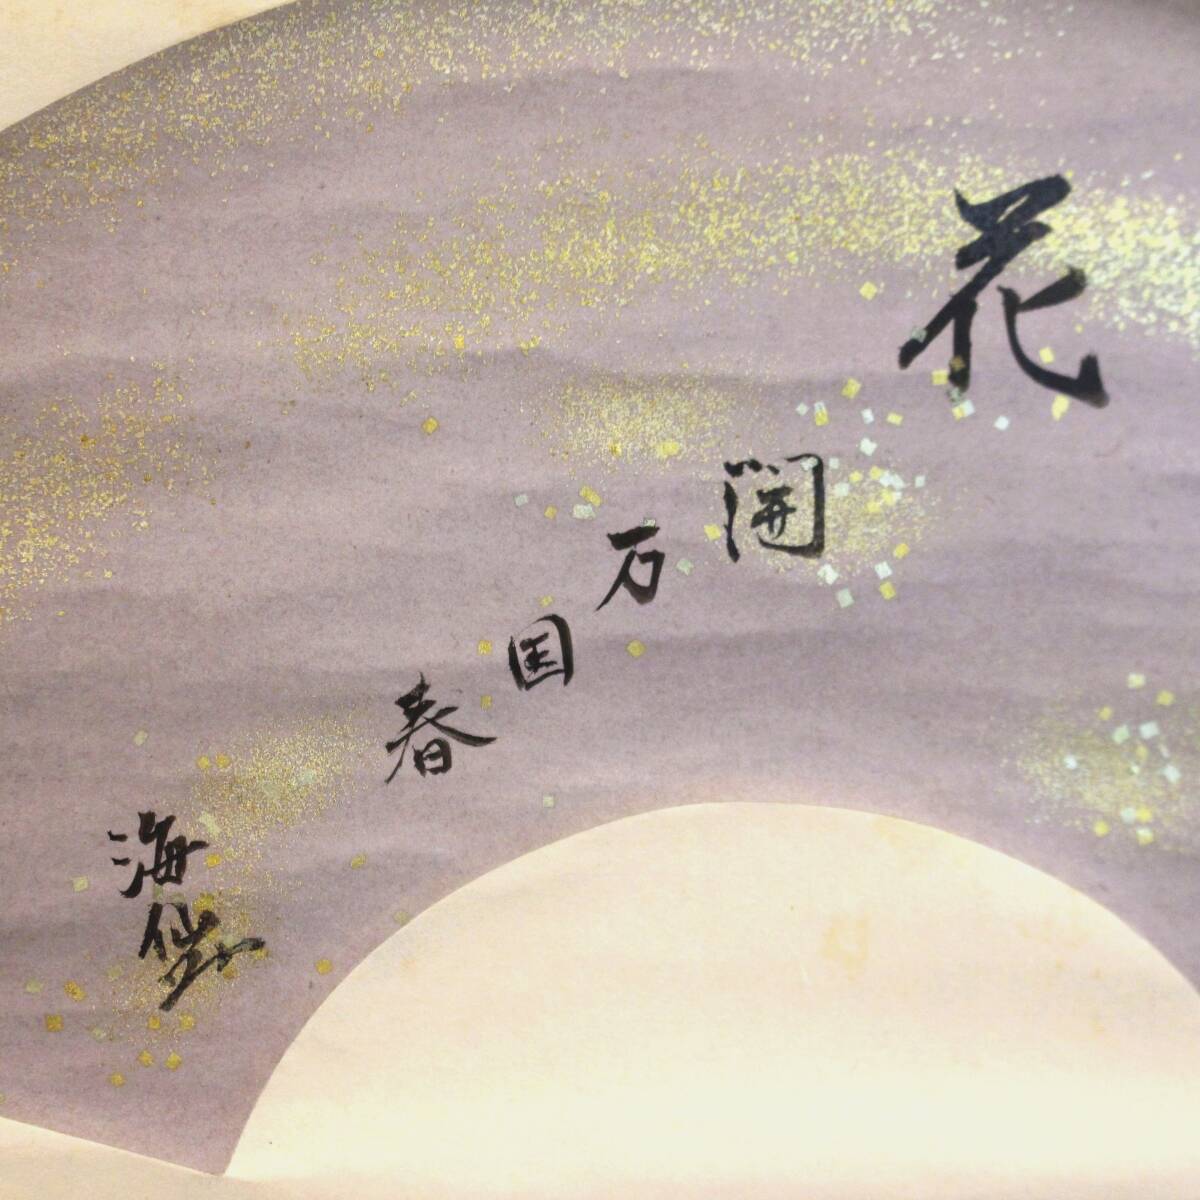 花開万国春
海